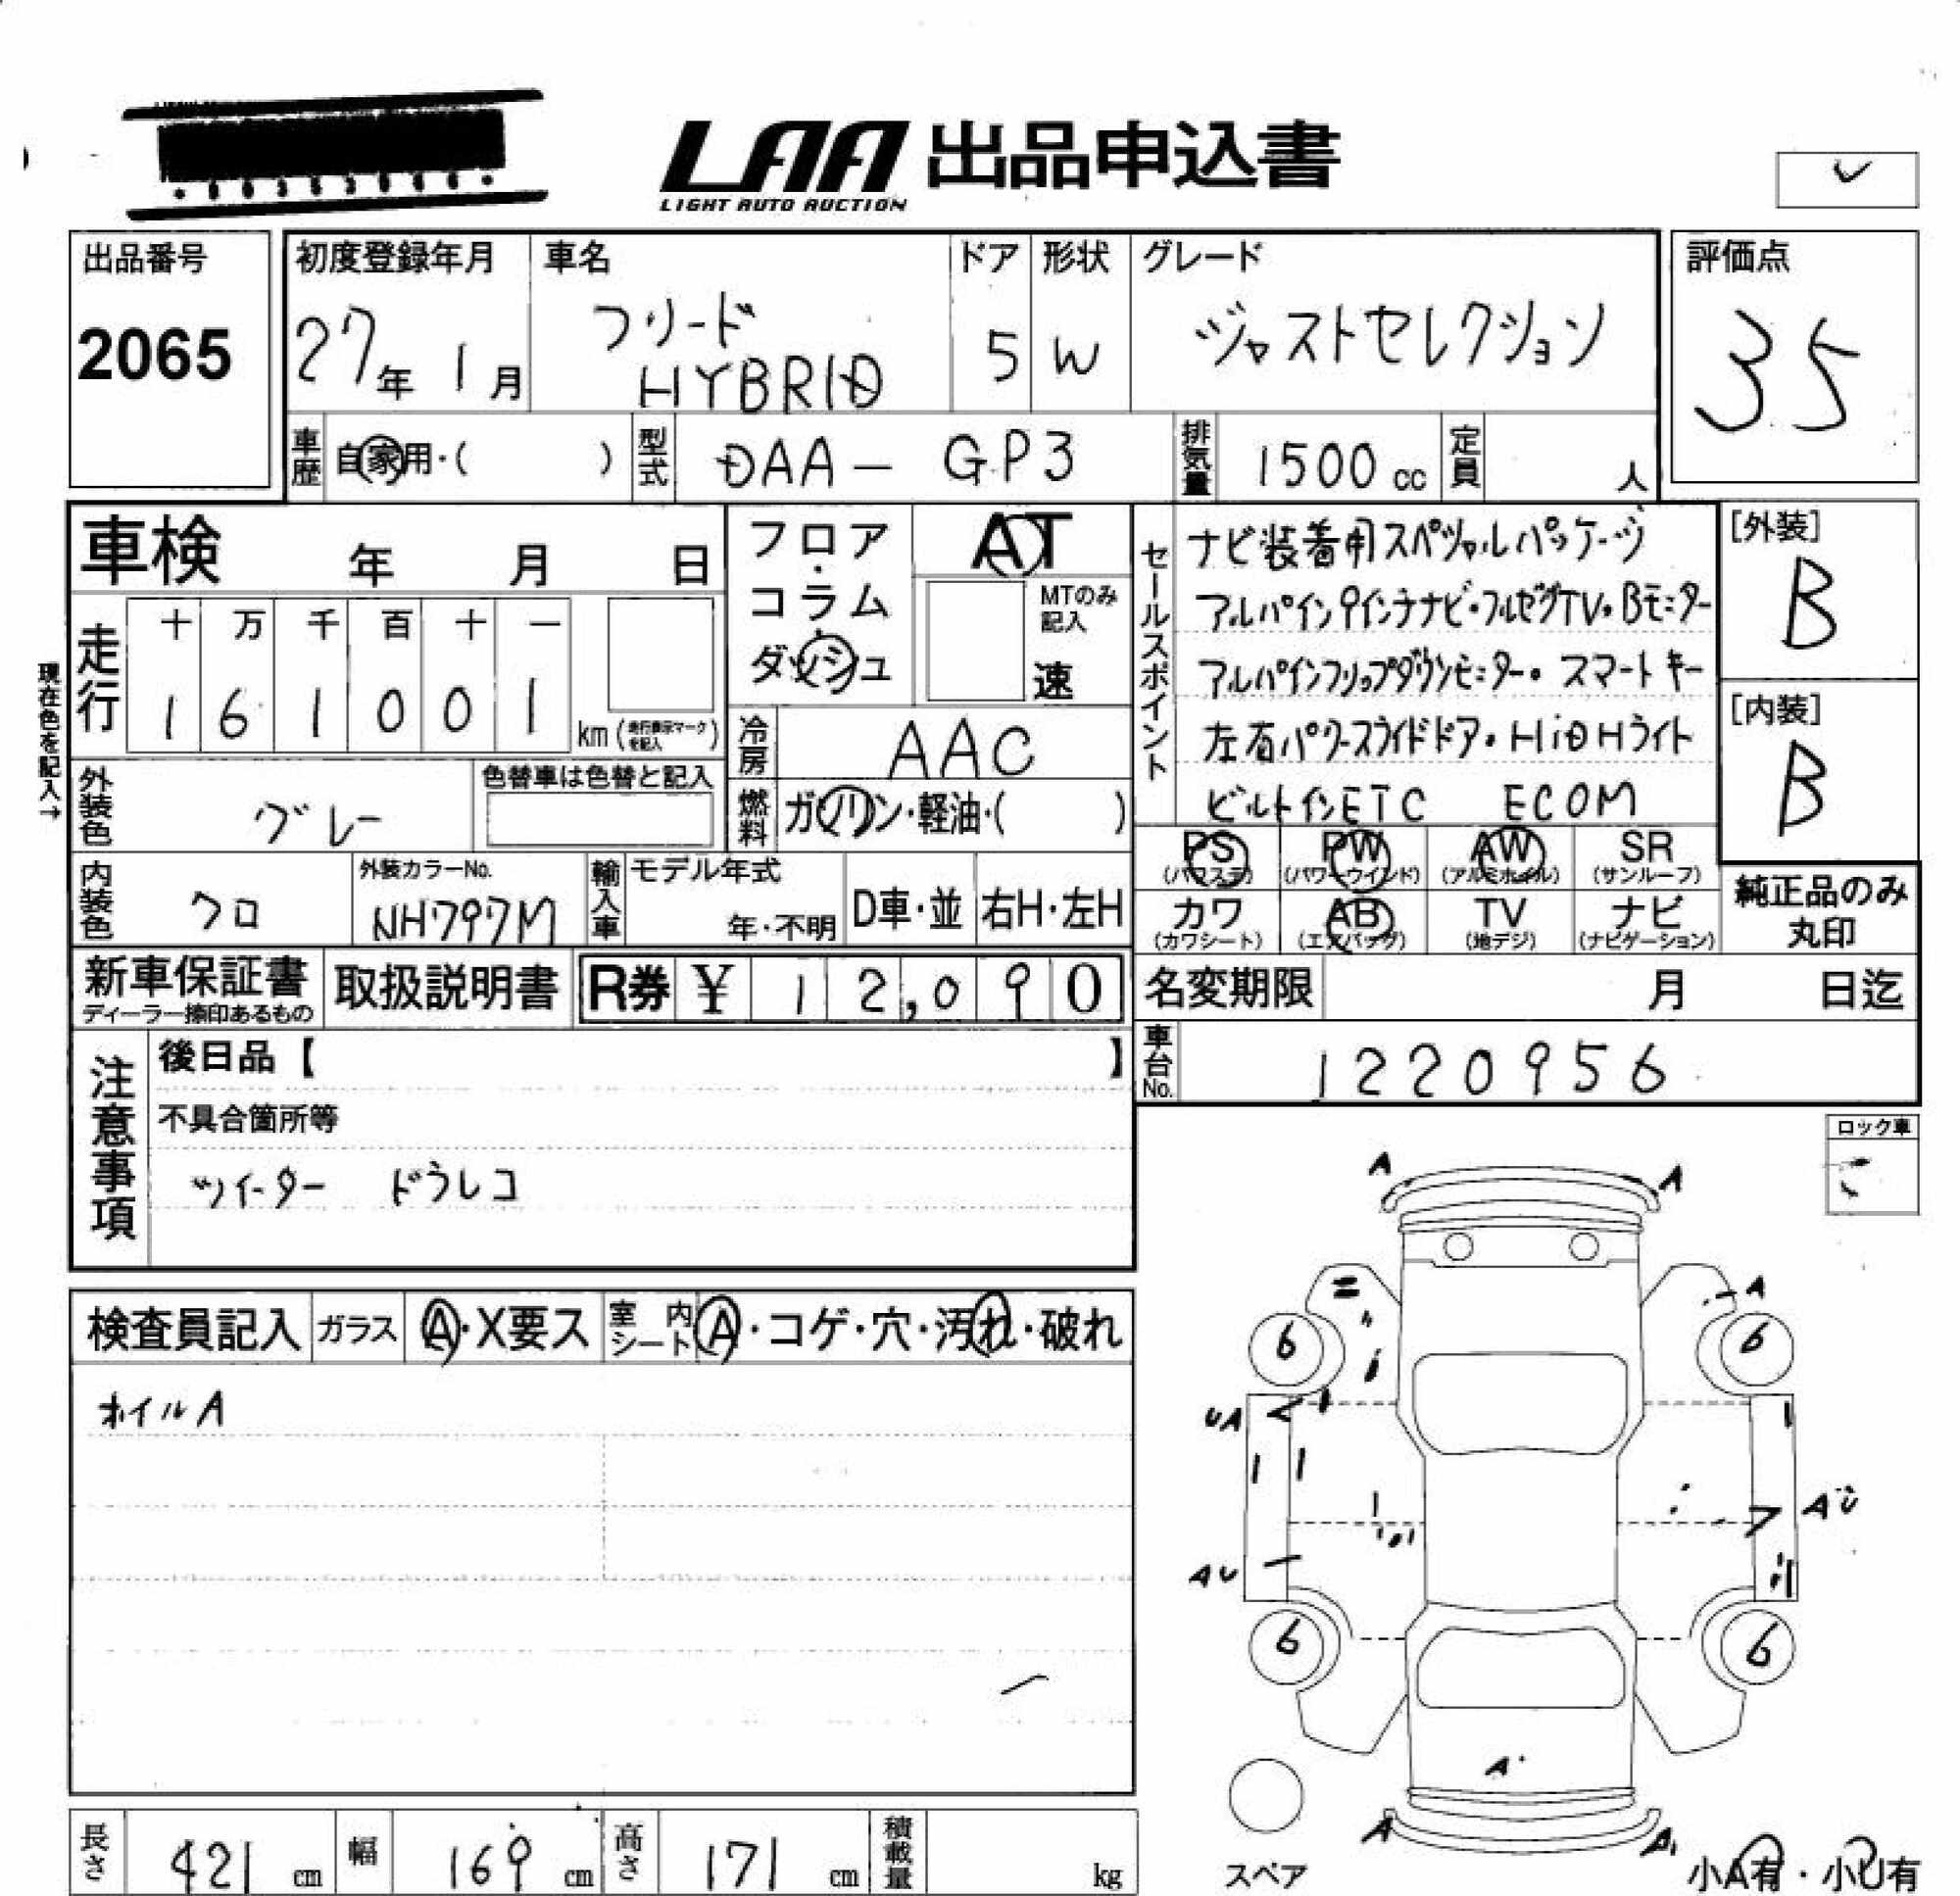 LAA 出品申込書
LIGHT AUTO AUCTION
出品番号
2065
初度登録年月
27年 1月
車名
フリード
HYBRID
ドア
5
形状
W
グレード
ジャストセレクション
評価点
3.5
車歴 自家用・( )
型式 DAA- GP3
排気量 1500 cc
定員 人
車検 年 月 日
フロア・コラム・ダッシュ
AT
MTのみ記入
速
走行
十 万 千 百 十 一
1 6 1 0 0 1
km (走行表示マークを記入)
現在色を記入→
外装色 グレー
色替車は色替と記入
冷房 AAC
燃料 ガソリン・軽油・( )
内装色 クロ
外装カラーNo.
NH797M
輸入車
モデル年式
年・不明
D車・並
右H・左H
セールスポイント
ナビ装着用スペシャルパッケージ
アルパイン9インチナビ・フルセグTV・Bモニター
アルパインフリップダウンモニター・スマートキー
左右パワースライドドア・HiDHライト
ビルトインETC ECOM
[外装]
B
[内装]
B
PS (パワステ)
PW (パワーウインド)
AW (アルミホイル)
SR (サンルーフ)
カワ (カワシート)
AB (エアバッグ)
TV (地デジ)
ナビ (ナビゲーション)
純正品のみ丸印
新車保証書
ディーラー捺印あるもの
取扱説明書
R券 ¥ 12,090
名変期限 月 日迄
車台No. 1220956
注意事項
後日品【 】
不具合箇所等
ツイーター ドラレコ
ロック車
検査員記入
ガラス A・X要ス
室内シート A・コゲ・穴・汚れ・破れ
ホイルA
A A
A
6 6
UA
AU
AU
6 6
A
A A
スペア
小A有・小U有
長さ 421 cm
幅 169 cm
高さ 171 cm
積載量 kg